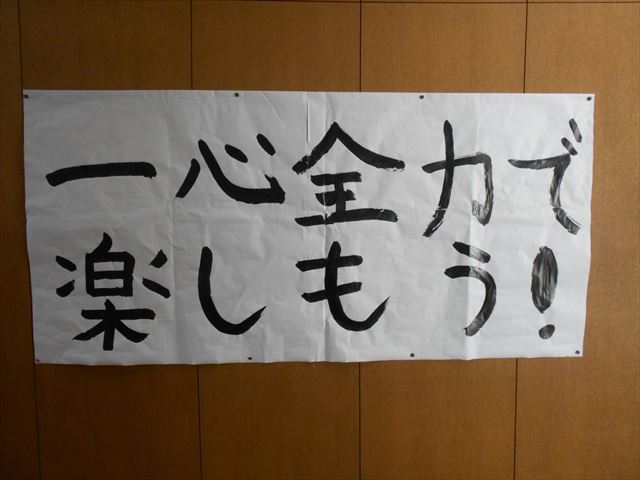 一心全力で
楽しもう!